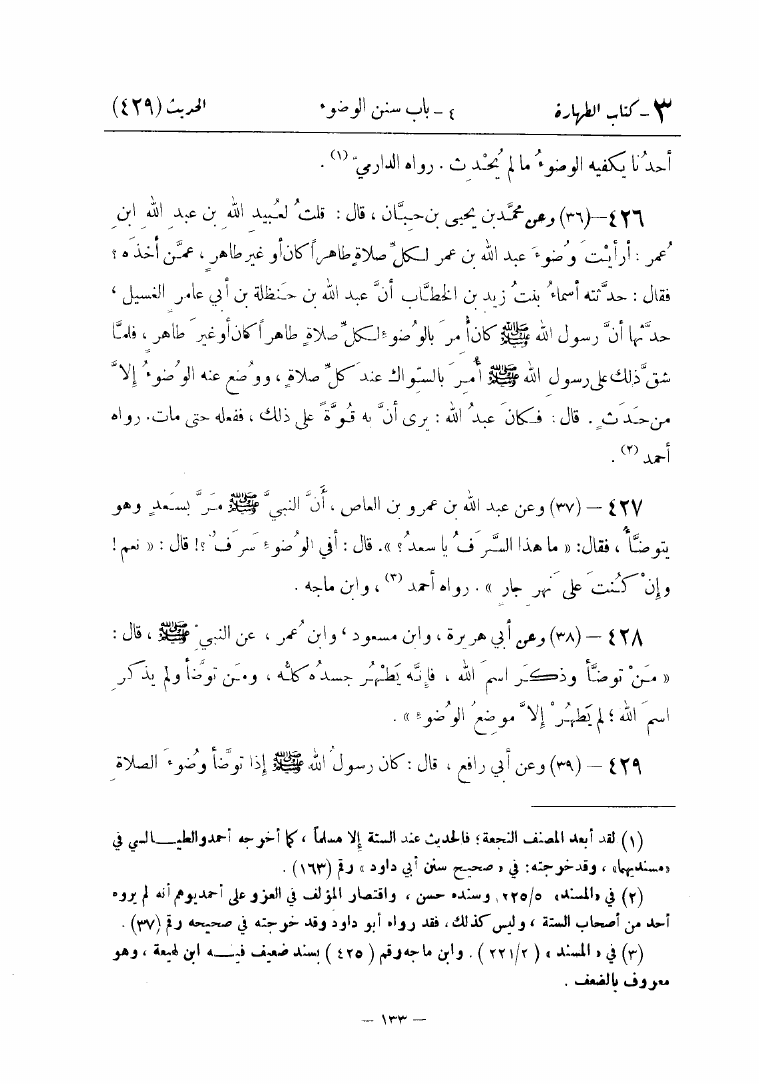 ٣ - كتاب الطهارة ٤ - باب سنن الوضوء الحديث (٤٢٩)
أحدُنا يكفيه الوضوءُ ما لم يُحْدِث . رواه الدارميّ (١) .
٤٢٦ – (٣٦) وعن محمَّد بن يحيى بن حبَّان ، قال : قلتُ لعُبيد الله بن عبد الله ابنِ
عُمر : أرأيْتَ وُضوءَ عبد الله بن عمر لكلِّ صلاةٍ طاهراً كان أو غير طاهرٍ ، عمَّن أخذَه ؟
فقال : حدَّثته أسماءُ بنتُ زيد بن الخطَّاب أنَّ عبد الله بن حَنظلة بن أبي عامر الغسيل ،
حدَّثها أنَّ رسول الله ﷺ كان أُمرَ بالوُضوءِ لكلِّ صلاةٍ طاهراً كان أو غيرَ طاهرٍ ، فلمَّا
شقَّ ذلك على رسول الله ﷺ أُمِرَ بالسِّواك عند كلِّ صلاةٍ ، ووُضع عنه الوُضوءُ إلاَّ
من حَدَثٍ . قال : فكانَ عبدُ الله : يرى أنَّ به قُوَّةً على ذلك ، ففعله حتى مات. رواه
أحمد (٢) .
٤٢٧ – (٣٧) وعن عبد الله بن عمرو بن العاص ، أنَّ النبيَّ ﷺ مرَّ بسَعدٍ وهو
يتوضَّأُ ، فقال: « ما هذا السَّرَفُ يا سعدُ؟ ». قال : أفي الوُضوءِ سَرَفٌ ؟! قال : « نعم !
وإنْ كُنتَ على نهرٍ جارٍ » . رواه أحمد (٣) ، وابن ماجه .
٤٢٨ – (٣٨) وعن أبي هريرة ، وابن مسعود ، وابن عُمر ، عن النبيِّ ﷺ ، قال :
« مَنْ توضَّأ وذكَرَ اسمَ الله ، فإنَّه يَطْهُر جسدُه كلُّه ، ومَن توضَّأ ولم يذكرِ
اسمَ الله ؛ لم يَطهُرْ إلاَّ موضعُ الوُضوءِ » .
٤٢٩ – (٣٩) وعن أبي رافع ، قال : كان رسولُ الله ﷺ إذا توضَّأ وُضوءَ الصلاة
(١) لقد أبعد المصنف النجعة؛ فالحديث عند الستة إلا مسلماً ، كما أخرجه أحمد والطيالسي في
«مسنديهما» ، وقد خرجته: في « صحيح سنن أبي داود » رقم (١٦٣) .
(٢) في «المسند» ٢٢٥/٥ وسنده حسن ، واقتصار المؤلف في العزو على أحمد يوهم أنه لم يروه
أحد من أصحاب الستة ، وليس كذلك، فقد رواه أبو داود وقد خرجته في صحيحه رقم (٣٧) .
(٣) في « المسند » ( ٢٢١/٢ ) . وابن ماجه رقم ( ٤٢٥ ) بسند ضعيف فيه ابن لهيعة ، وهو
معروف بالضعف .
– ١٣٣ –